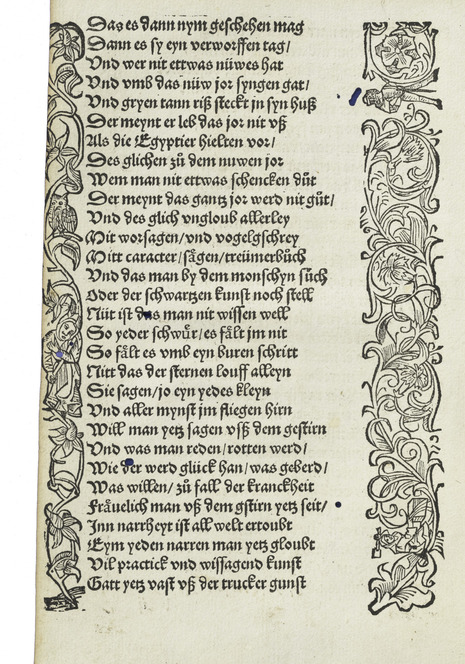 Das es dann nym geschehen mag
Dann es sy eyn verworffen tag/
Vnd wer nit ettwas nüwes hat
Vnd vmb das nüw jor syngen gat/
Vnd gryen tann riß steckt jn syn huß
Der meynt er leb das jor nit vß
Als die Egyptier hielten vor/
Des glichen zů dem nuwen jor
Wem man nit ettwas schencken důt
Der meynt das gantz jor werd nit gůt/
Vnd des glich vngloub allerley
Mit worsagen/vnd vogelgschrey
Mitt caracter/sägen/treümerbůch
Vnd das man by dem monschyn sůch
Oder der schwartzen kunst noch stell
Nüt ist das man nit wissen well
So yeder schwůr/es fält jm nit
So fält es vmb eyn buren schritt
Nitt das der sternen louff alleyn
Sie sagen/jo eyn yedes kleyn
Vnd aller mynst jm fliegen hirn
Will man yetz sagen vsß dem gestirn
Vnd was man reden/rotten werd/
Wie der werd glück han/was geberd/
Was willen/zů fall der kranckheit
Fräuelich man vß dem gstirn yetz seit/
Jnn narrheyt ist all welt ertoubt
Eym yeden narren man yetz gloubt
Vil practick vnd wissagend kunst
Gatt yetz vast vß der trucker gunst